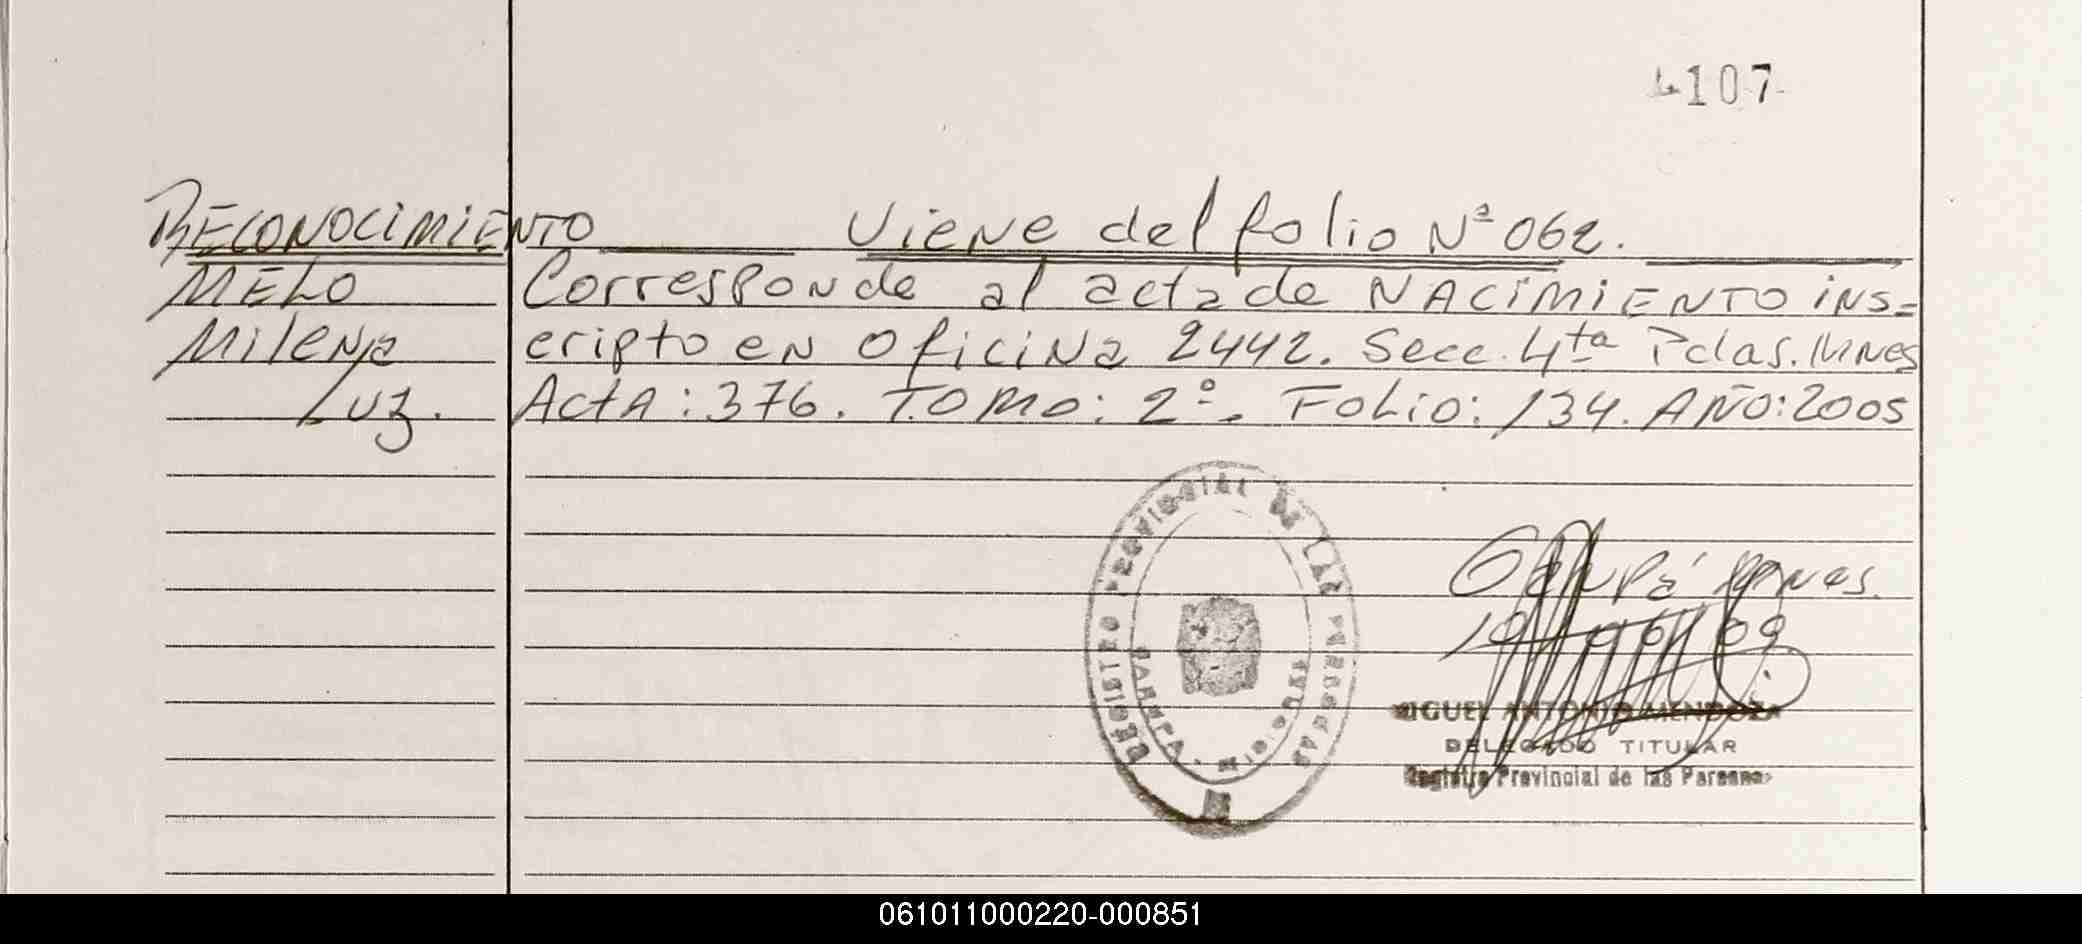 107
RECONOCIMIENTO Viene del folio Nº 062.
MELO Corresponde al acta de NACIMIENTO ins=
Milena cripto en Oficina 2442. Secc. 4ta Pdas. MNES
Luz. Acta: 376. TOMO: 2º. Folio: 134. AÑO: 2005
REGISTRO PROVINCIAL DE LAS PERSONAS
Garupá Mnes.
MIGUEL ANTONIO MENDOZA
DELEGADO TITULAR
Registro Provincial de las Personas
061011000220-000851